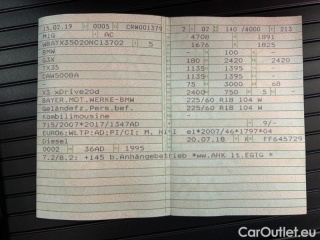 15.02.19 0005 CRW00137
M1G AC
WBATX35020NC13702 5
BMW
G3X
TX35
CAW5000A
X3 xDrive20d
BAYER.MOT.WERKE-BMW
Geländefz.Pers.bef.
Kombilimousine
715/2007*2017/1347AD
EURO6;WLTP:AD;PI/CI; M, H:I
Diesel
0002 36AD 1995
7.2/8.2: +145 b.Anhängebetrieb *ww.AHK lt.EGTG *
2 02 140/4000 213
4708 1891
1676 1825
- 100 -
180 2420 2420
1135 1395 -
1135 1395 -
75 3000 68
2400 750 5 -
225/60 R18 104 W
225/60 R18 104 W
- 9/-
e1*2007/46*1797*04
20.07.18 FF645729
CarOutlet.eu